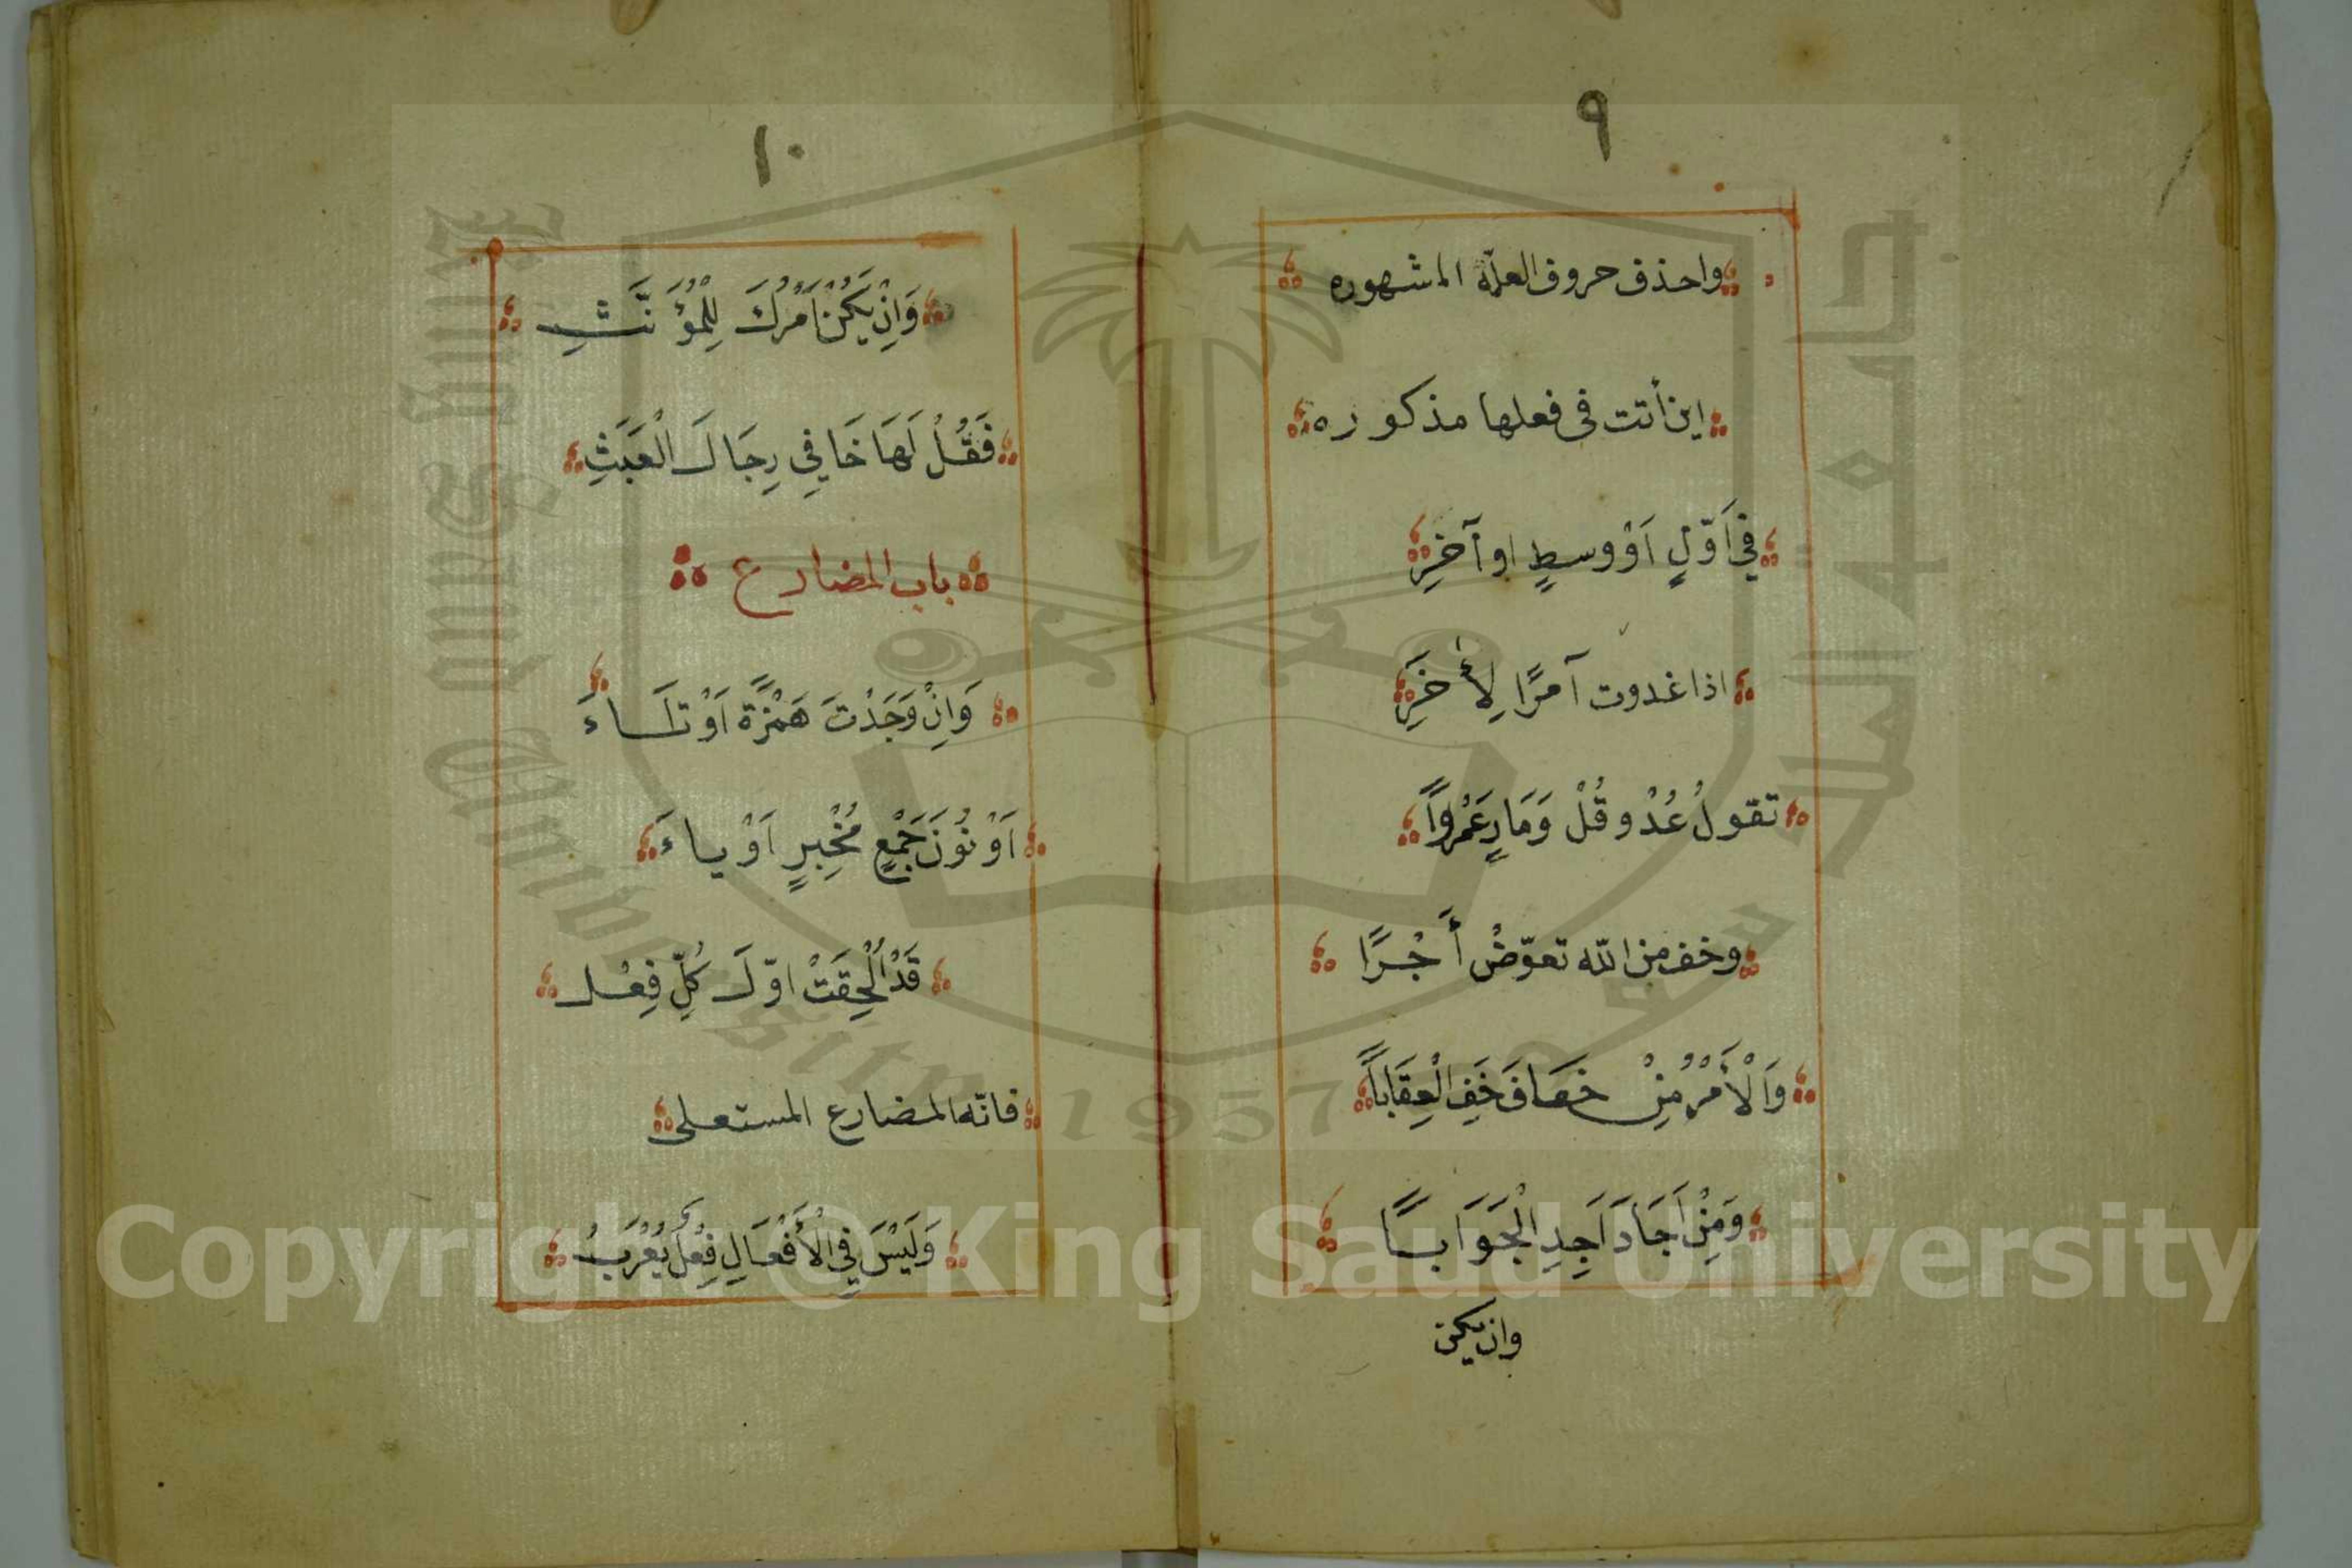 ٩
واحذف حروف العلّة المشهوره
ان أتت فى فعلها مذكوره
فِي اَوّلٍ اَوْ وسطٍ او آخِرِ
اذا غدوت آمرًا لِأَخَرِ
تقولُ عُدْ وقُلْ وَمَارِ عَمْرواً
وخف من اللّه تعوّضْ أَجْرًا
وَالْأَمْرُ مِنْ خَافَ خَفِ الْعِقَاباً
وَمِنْ اَجَادَ اَجِدِ الْجَوَابًا
وان يكن
١٠
وَاِنْ يَكُنْ اَمْرُكَ لِلْمُؤَنَّثِ
فَقُلْ لَهَا خَافِي رِجَالَ الْعَبَثِ
باب المضارع
وَاِنْ وَجَدْتَ هَمْزَةً اَوْ تَاءَ
اَوْ نُونَ جَمْعٍ مُخْبِرٍ اَوْ ياءَ
قَدْ اُلْحِقَتْ اوّلَ كُلِّ فِعْل
فانّه المضارع المستعلى
وَلَيْسَ فِي الْأَفْعَالِ فِعْلٌ يُعْرَبُ
جامعة الملك سعود
King Saud University
1957
Copyright © King Saud University